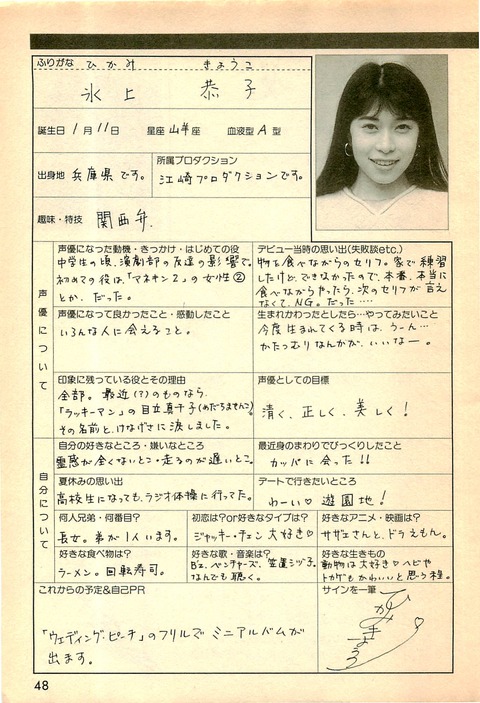 ふりがな ひかみ きょうこ
氷上 恭子
誕生日 1月11日 星座 山羊座 血液型 A型
出身地 兵庫県です。
所属プロダクション
江崎プロダクションです。
趣味・特技 関西弁。
声優について
声優になった動機・きっかけ・はじめての役
中学生の頃、演劇部の友達の影響で。
初めての役は、「マネキン2」の女性②
とか、だった。
デビュー当時の思い出(失敗談etc.)
物を食べながらのセリフ。家で練習
したけど、できなかったので、本番、本当に
食べながらやったら、次のセリフが言え
なくて、NG。だった……
声優になって良かったこと・感動したこと
いろんな人に会えること。
生まれかわったとしたら…やってみたいこと
今度生まれてくる時は、うーん…
かたつむりなんかが、いいなー。
印象に残っている役とその理由
全部。最近(?)のものなら、
「ラッキーマン」の目立真千子(めだちまちこ)。
その名前と、けなげさに涙しました。
声優としての目標
清く、正しく、美しく!
自分について
自分の好きなところ・嫌いなところ
霊感が全くないとこ・走るのが遅いとこ。
最近身のまわりでびっくりしたこと
カッパに会った!!
夏休みの思い出
高校生になっても、ラジオ体操に行ってた。
デートで行きたいところ
わーい♡ 遊園地!
何人兄弟・何番目?
長女。弟が1人います。
初恋は?or好きなタイプは?
ジャッキー・チェン大好き♡
好きなアニメ・映画は?
サザエさんと、ドラえもん。
好きな食べ物は?
ラーメン。回転寿司。
好きな歌・音楽は?
B'z、ベンチャーズ、笠置シヅ子。
なんでも聴く。
好きな生きもの
動物は大好き♡ヘビや
トカゲもかわいいと思う程。
これからの予定&自己PR
「ウェディング・ピーチ」のフリルで ミニアルバムが
出ます。
サインを一筆
ひかみきょうこ♡
48